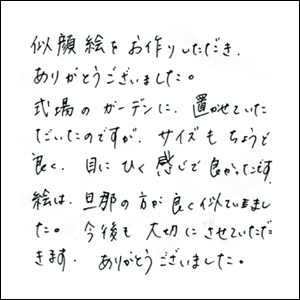 似顔絵をお作りしただき、
ありがとうございました。
式場のガーデンに、置かせていた
だいたのですが、サイズもちょうど
良く、目にひく感じで良かったです。
絵は、旦那の方が良く似ていまし
た。今後も大切にさせていただ
きます。ありがとうございました。